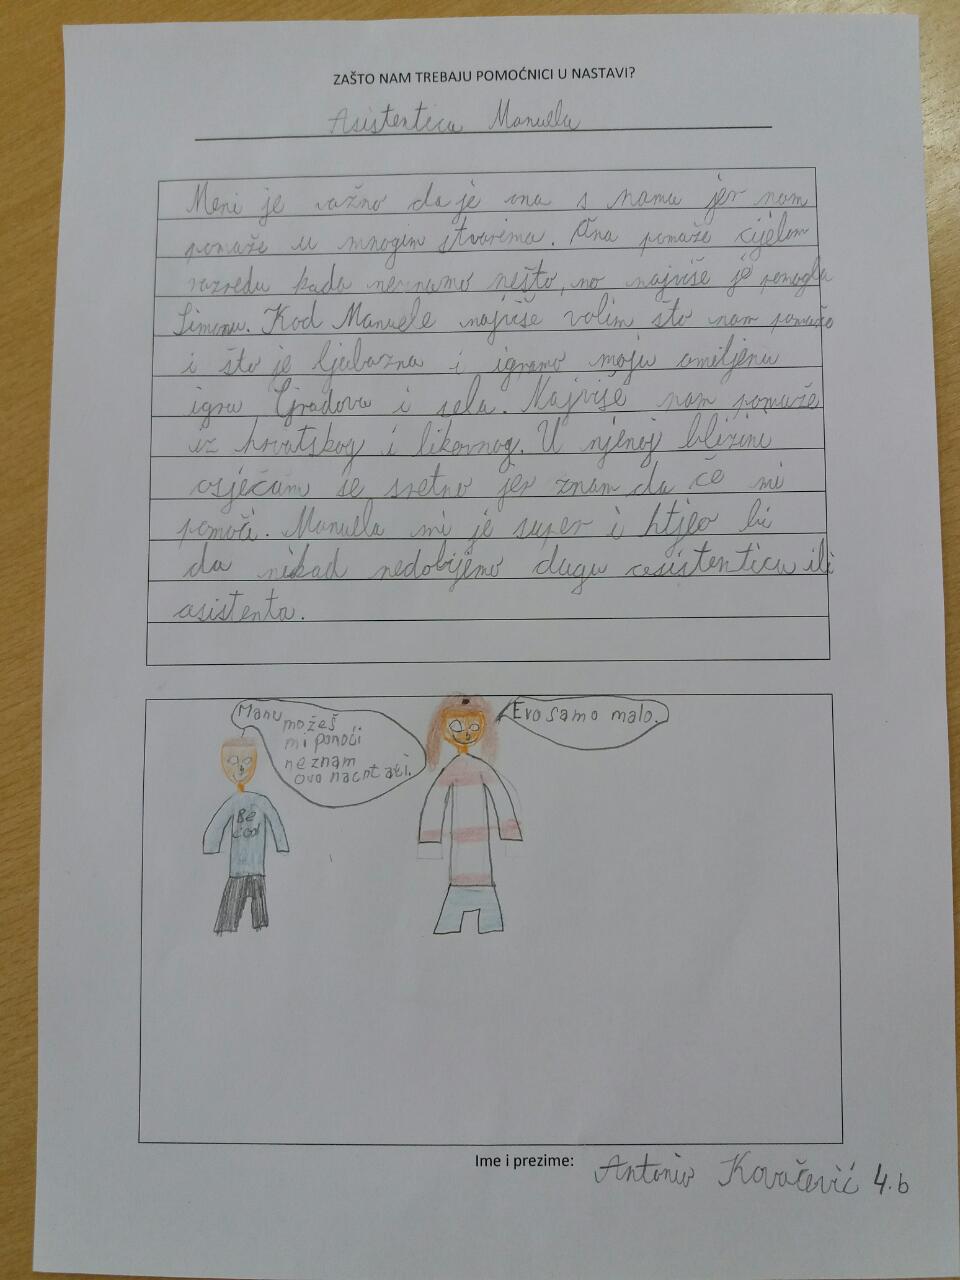 ZAŠTO NAM TREBAJU POMOĆNICI U NASTAVI?
Asistentica Manuela
Meni je važno da je ona s nama jer nam
pomaže u mnogim stvarima. Ona pomaže cijelom
razredu kada neznamo nešto, no najviše je pomogla
Simonu. Kod Manuele najviše volim što nam pomaže
i što je ljubazna i igramo moju omiljenu
igru Gradova i sela. Najviše nam pomaže
iz hrvatskog i likovnog. U njenoj blizini
osjećam se sretno jer znam da če mi
pomoči. Manuela mi je super i htjeo bi
da nikad nedobijemo dugu asistenticu ili
asistenta.
Manu
možeš
mi pomoći
neznam
ovo nacrtati.
Evo samo malo.
Be
cool
Ime i prezime: Antonio Kovačević 4.b